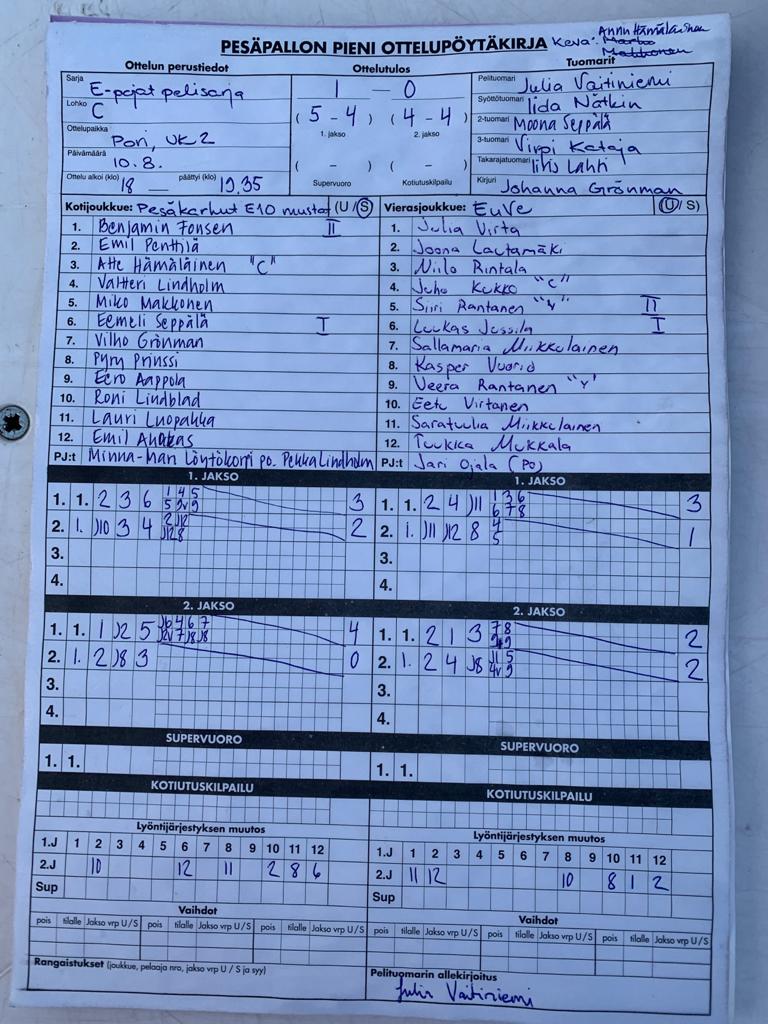 PESÄPALLON PIENI OTTELUPÖYTÄKIRJA Keva: Annu Hämäläinen
Ottelun perustiedot Ottelutulos Tuomarit
Sarja E-pojat pelisarja
Lohko C
Ottelupaikka Pori, UK2
Päivämäärä 10.8.
Ottelu alkoi (klo) 18 päättyi (klo) 19.35
1 — 0
( 5 - 4 ) ( 4 - 4 )
1. jakso 2. jakso
( - ) ( - )
Supervuoro Kotiutuskilpailu
Pelituomari Julia Vaitiniemi
Syöttötuomari Iida Nätkin
2-tuomari Moona Seppälä
3-tuomari Virpi Kataja
Takarajatuomari Iiris Lahti
Kirjuri Johanna Grönman
Kotijoukkue: Pesäkarhut E10 mustat (U / S)
1. Benjamin Fonsen II
2. Emil Penttilä
3. Atte Hämäläinen "C"
4. Valtteri Lindholm
5. Miko Makkonen
6. Eemeli Seppälä I
7. Vilho Grönman
8. Pyry Prinssi
9. Eero Aappola
10. Roni Lindblad
11. Lauri Luopakka
12. Emil
PJ:t Minna-Mari Löytökorpi po. Pekka Lindholm
Vierasjoukkue: EuVe (U / S)
1. Julia Virta
2. Joona Lautamäki
3. Niilo Rintala
4. Juho Kukko "C"
5. Siiri Rantanen "Y" II
6. Luukas Jussila I
7. Sallamaria Miikkulainen
8. Kasper Vuorio
9. Veera Rantanen "Y"
10. Eetu Virtanen
11. Saratuulia Miikkulainen
12. Tuukka Mukkala
PJ:t Jari Ojala (PO)
1. JAKSO
1. 1. 2 3 6 1 4 5 3
5 9v 9
2. 1. )10 3 4 2 )12 2
)12 8
3.
4.
1. JAKSO
1. 1. 2 4 )11 1 3 6 3
6 7 8
2. 1. )11 )12 8 4 1
5
3.
4.
2. JAKSO
1. 1. 1 )2 5 )6 4 6 7 4
)2v 7 )8 )8
2. 1. 2 )8 3 0
3.
4.
2. JAKSO
1. 1. 2 1 3 7 8 2
2. 1. 2 4 )8 )1 5 2
4v 9
3.
4.
SUPERVUORO
1. 1.
SUPERVUORO
1. 1.
KOTIUTUSKILPAILU
KOTIUTUSKILPAILU
Lyöntijärjestyksen muutos
1.J 1 2 3 4 5 6 7 8 9 10 11 12
2.J 10 12 11 2 8 6
Sup
Lyöntijärjestyksen muutos
1.J 1 2 3 4 5 6 7 8 9 10 11 12
2.J 11 12 10 8 1 2
Sup
Vaihdot
pois tilalle Jakso vrp U / S pois tilalle Jakso vrp U / S pois tilalle Jakso vrp U / S
Vaihdot
pois tilalle Jakso vrp U / S pois tilalle Jakso vrp U / S pois tilalle Jakso vrp U / S
Rangaistukset (joukkue, pelaaja nro, jakso vrp U / S ja syy)
Pelituomarin allekirjoitus
Julia Vaitiniemi